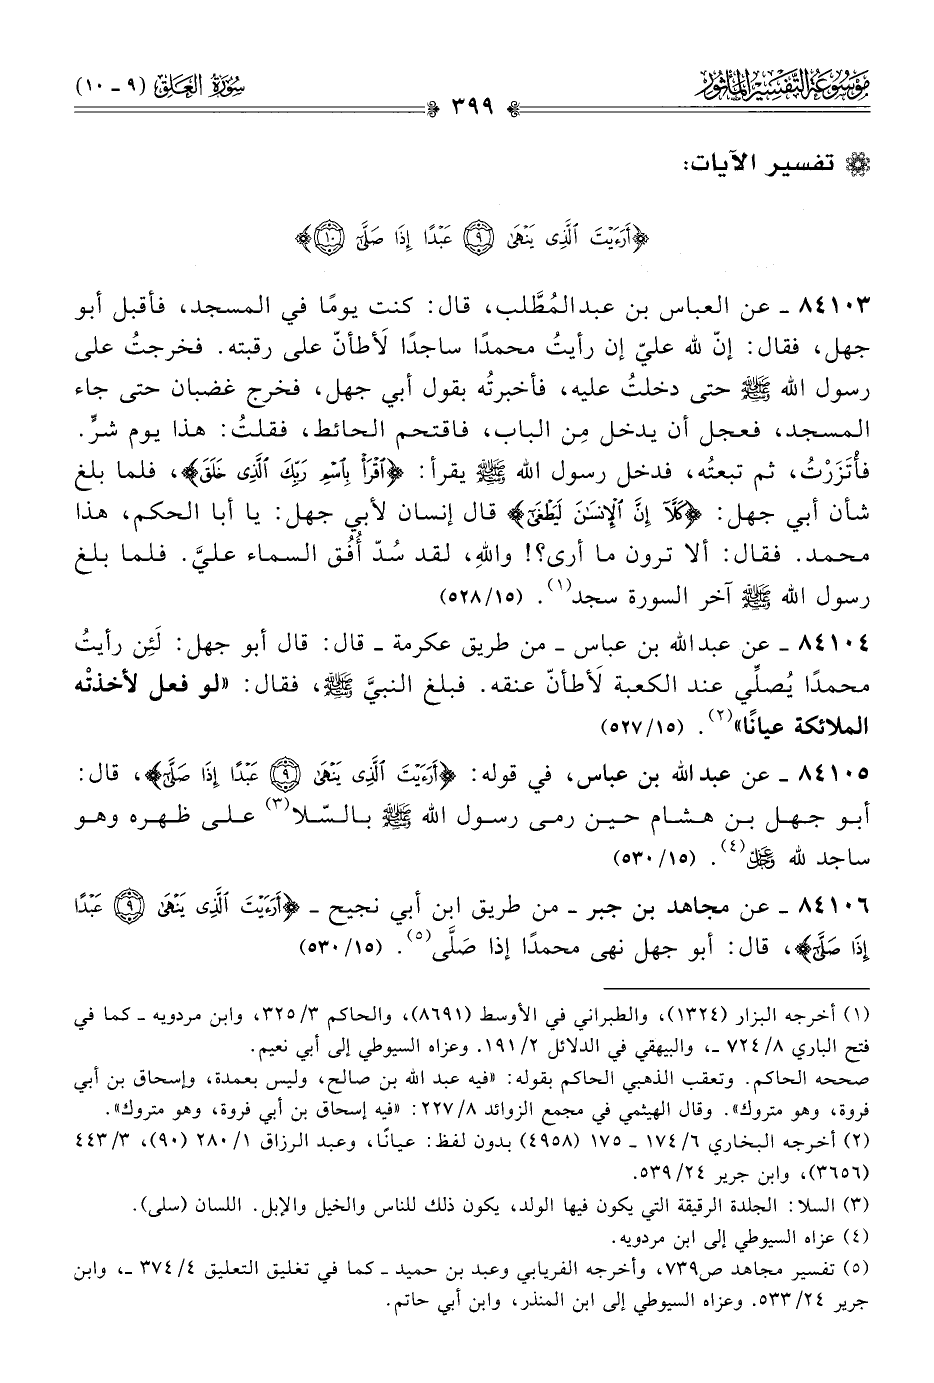 موسوعة التفسير المأثور
سورة العلق (٩ - ١٠)
٣٩٩
تفسير الآيات:
﴿أَرَءَيْتَ ٱلَّذِى يَنْهَىٰ ۝٩ عَبْدًا إِذَا صَلَّىٰٓ ۝١٠﴾
٨٤١٠٣ ـ عن العباس بن عبدالمُطَّلب، قال: كنت يومًا في المسجد، فأقبل أبو
جهل، فقال: إنّ لله عليّ إن رأيتُ محمدًا ساجدًا لَأطأنّ على رقبته. فخرجتُ على
رسول الله ﷺ حتى دخلتُ عليه، فأخبرتُه بقول أبي جهل، فخرج غضبان حتى جاء
المسجد، فعجل أن يدخل مِن الباب، فاقتحم الحائط، فقلتُ: هذا يوم شرٍّ.
فأْتَزَرْتُ، ثم تبعتُه، فدخل رسول الله ﷺ يقرأ: ﴿ٱقْرَأْ بِٱسْمِ رَبِّكَ ٱلَّذِى خَلَقَ﴾، فلما بلغ
شأن أبي جهل: ﴿كَلَّآ إِنَّ ٱلْإِنسَٰنَ لَيَطْغَىٰٓ﴾ قال إنسان لأبي جهل: يا أبا الحكم، هذا
محمد. فقال: ألا ترون ما أرى؟! واللهِ، لقد سُدّ أُفُق السماء عليَّ. فلما بلغ
رسول الله ﷺ آخر السورة سجد(١). (١٥/ ٥٢٨)
٨٤١٠٤ ـ عن عبدالله بن عباس ـ من طريق عكرمة ـ قال: قال أبو جهل: لَئِن رأيتُ
محمدًا يُصلِّي عند الكعبة لَأطأنّ عنقه. فبلغ النبيَّ ﷺ، فقال: «لو فعل لأخذتْه
الملائكة عيانًا»(٢). (١٥/ ٥٢٧)
٨٤١٠٥ ـ عن عبدالله بن عباس، في قوله: ﴿أَرَءَيْتَ ٱلَّذِى يَنْهَىٰ ۝٩ عَبْدًا إِذَا صَلَّىٰٓ﴾، قال:
أبو جهل بن هشام حين رمى رسول الله ﷺ بالسّلا(٣) على ظهره وهو
ساجد لله ﷿(٤). (١٥/ ٥٣٠)
٨٤١٠٦ ـ عن مجاهد بن جبر ـ من طريق ابن أبي نجيح ـ ﴿أَرَءَيْتَ ٱلَّذِى يَنْهَىٰ ۝٩ عَبْدًا
إِذَا صَلَّىٰٓ﴾، قال: أبو جهل نهى محمدًا إذا صَلَّى(٥). (١٥/ ٥٣٠)
(١) أخرجه البزار (١٣٢٤)، والطبراني في الأوسط (٨٦٩١)، والحاكم ٣/ ٣٢٥، وابن مردويه ـ كما في
فتح الباري ٨/ ٧٢٤ ـ، والبيهقي في الدلائل ٢/ ١٩١. وعزاه السيوطي إلى أبي نعيم.
صححه الحاكم. وتعقب الذهبي الحاكم بقوله: «فيه عبد الله بن صالح، وليس بعمدة، وإسحاق بن أبي
فروة، وهو متروك». وقال الهيثمي في مجمع الزوائد ٨/ ٢٢٧: «فيه إسحاق بن أبي فروة، وهو متروك».
(٢) أخرجه البخاري ٦/ ١٧٤ ـ ١٧٥ (٤٩٥٨) بدون لفظ: عيانًا، وعبد الرزاق ١/ ٢٨٠ (٩٠)، ٣/ ٤٤٣
(٣٦٥٦)، وابن جرير ٢٤/ ٥٣٩.
(٣) السلا: الجلدة الرقيقة التي يكون فيها الولد، يكون ذلك للناس والخيل والإبل. اللسان (سلى).
(٤) عزاه السيوطي إلى ابن مردويه.
(٥) تفسير مجاهد ص٧٣٩، وأخرجه الفريابي وعبد بن حميد ـ كما في تغليق التعليق ٤/ ٣٧٤ ـ، وابن
جرير ٢٤/ ٥٣٣. وعزاه السيوطي إلى ابن المنذر، وابن أبي حاتم.